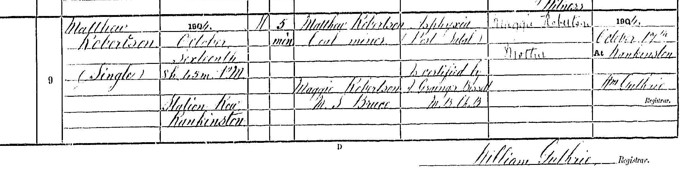 Witness
Matthew Robertson (Single)
9
1904. October Sixteenth 8h. 45m. P.M.
Station Row Rankinston
M
5 min
Matthew Robertson
Coal miner
Maggie Robertson
M. S. Bruce
Asphyxia
(Post Natal)
As certified by
J Granger
M. B. Ch. B
Maggie Robertson
Mother
1904,
October 17th
At Rankinston
Wm Guthrie
Registrar.
D
William Guthrie Registrar.